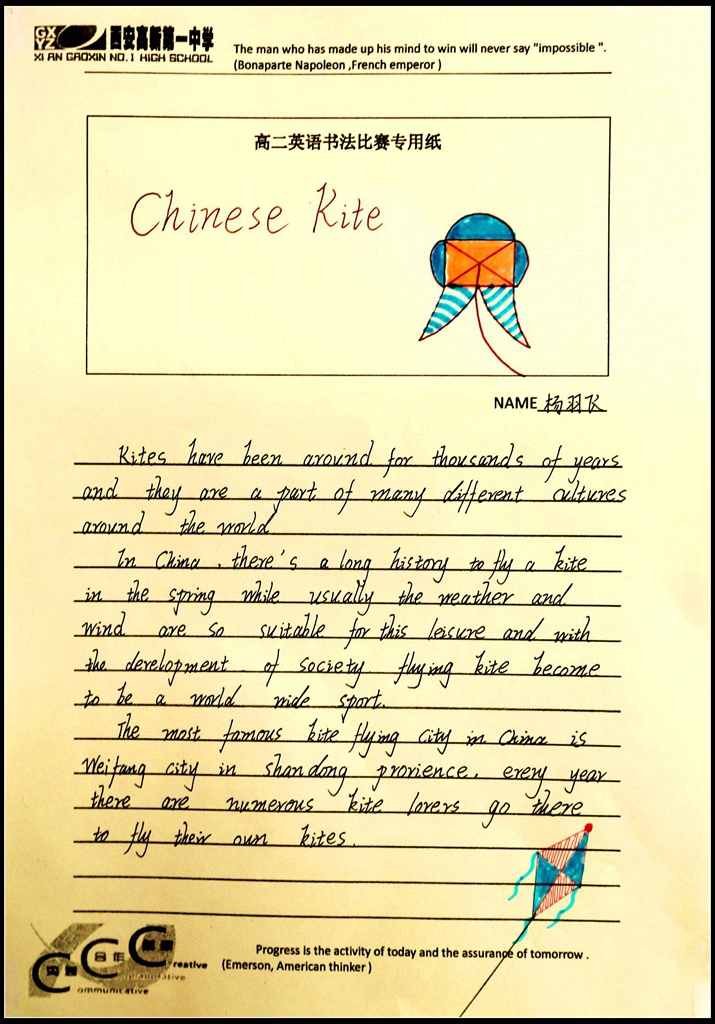 GX
YZ
西安高新第一中学
XI AN GAOXIN NO.1 HIGH SCHOOL
The man who has made up his mind to win will never say "impossible ".
(Bonaparte Napoleon ,French emperor )
高二英语书法比赛专用纸
Chinese Kite
NAME 杨羽飞
Kites have been around for thousands of years
and they are a part of many different cultures
around the world
In China , there's a long history to fly a kite
in the spring while usually the weather and
wind are so suitable for this leisure and with
the development of society flying kite become
to be a world wide sport.
The most famous kite flying city in China is
Weifang city in shandong provience. every year
there are numerous kite lovers go there
to fly their own kites.
合作
Creative
Collaborative
Communicative
Progress is the activity of today and the assurance of tomorrow .
(Emerson, American thinker )